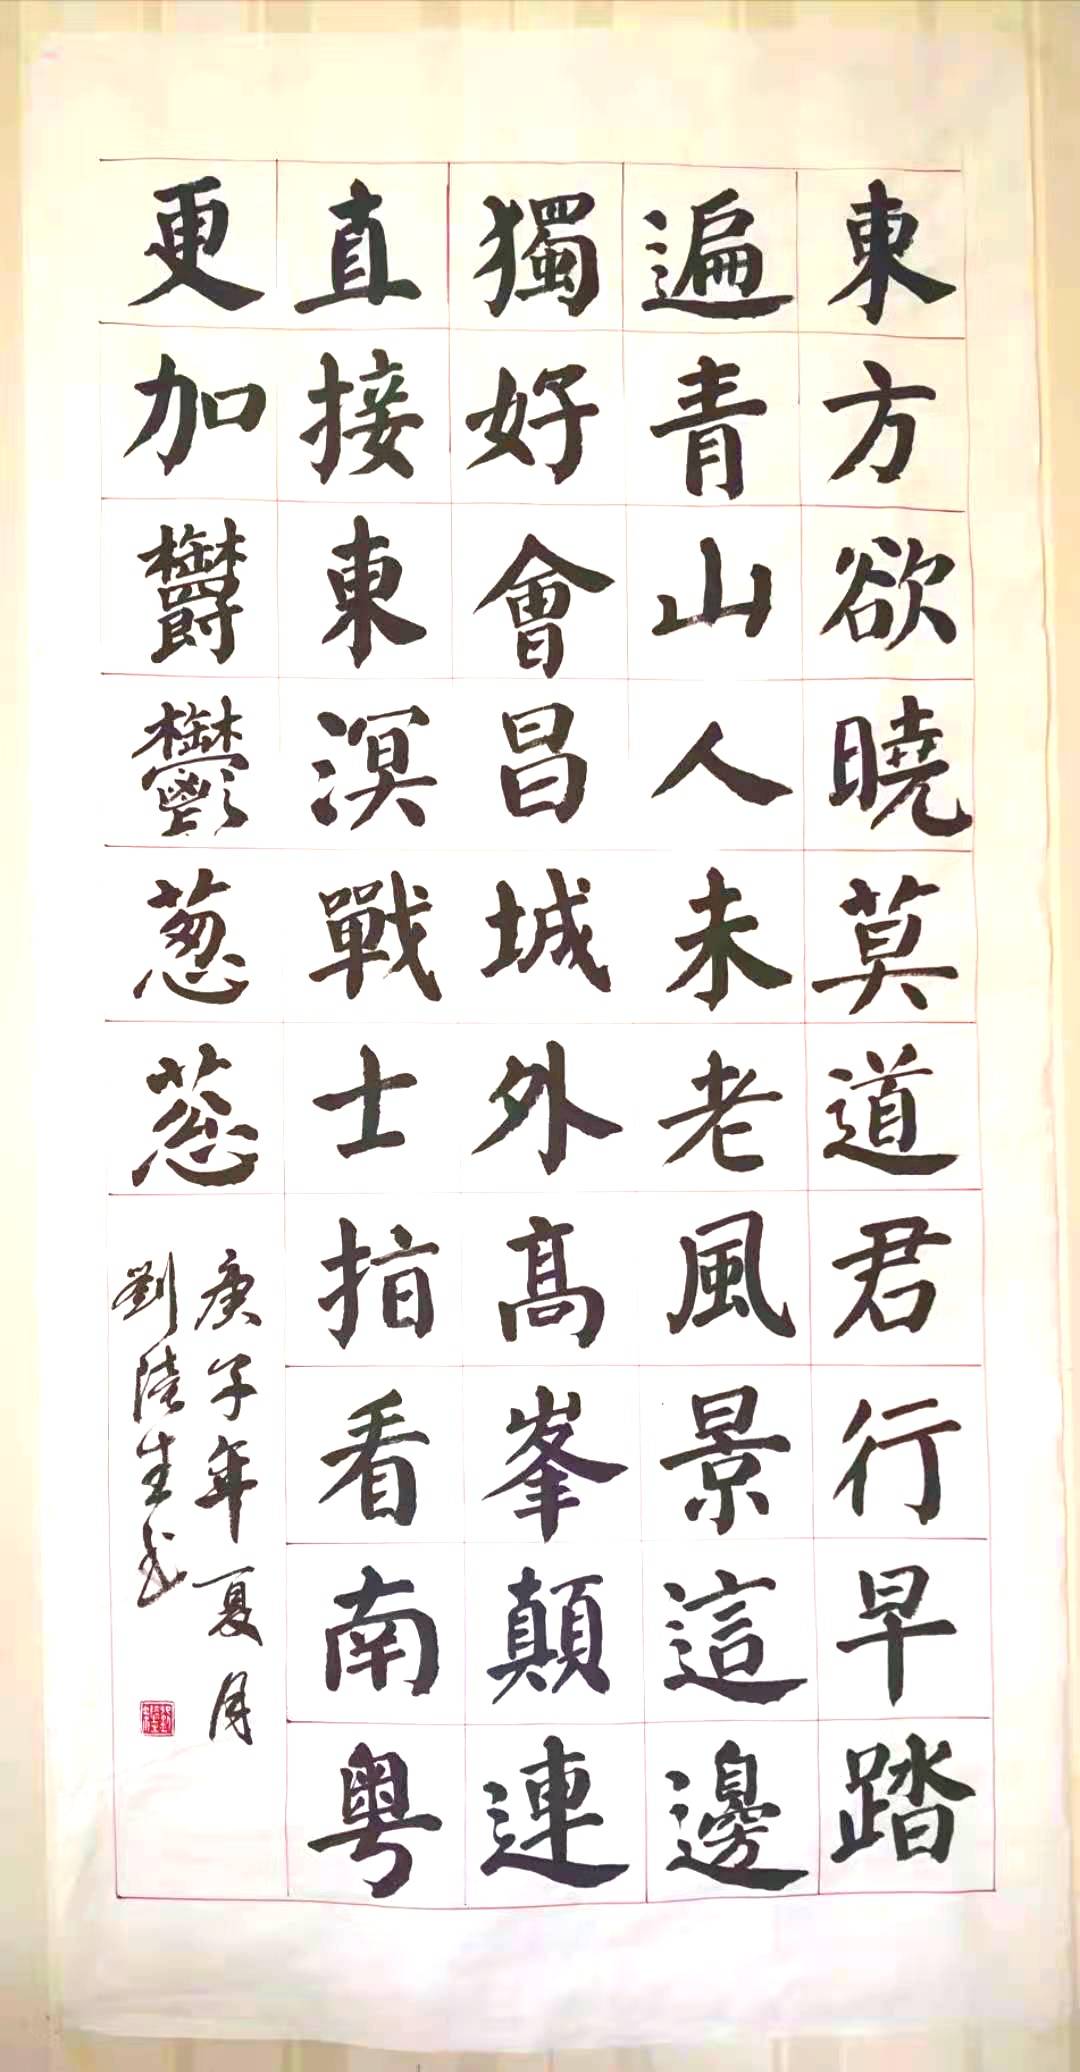 東方欲曉莫道君行早踏
遍青山人未老風景這邊
獨好會昌城外髙峯顛連
直接東溟戰士指看南粵
更加鬱鬱葱葱
庚子年夏月
劉陸生书